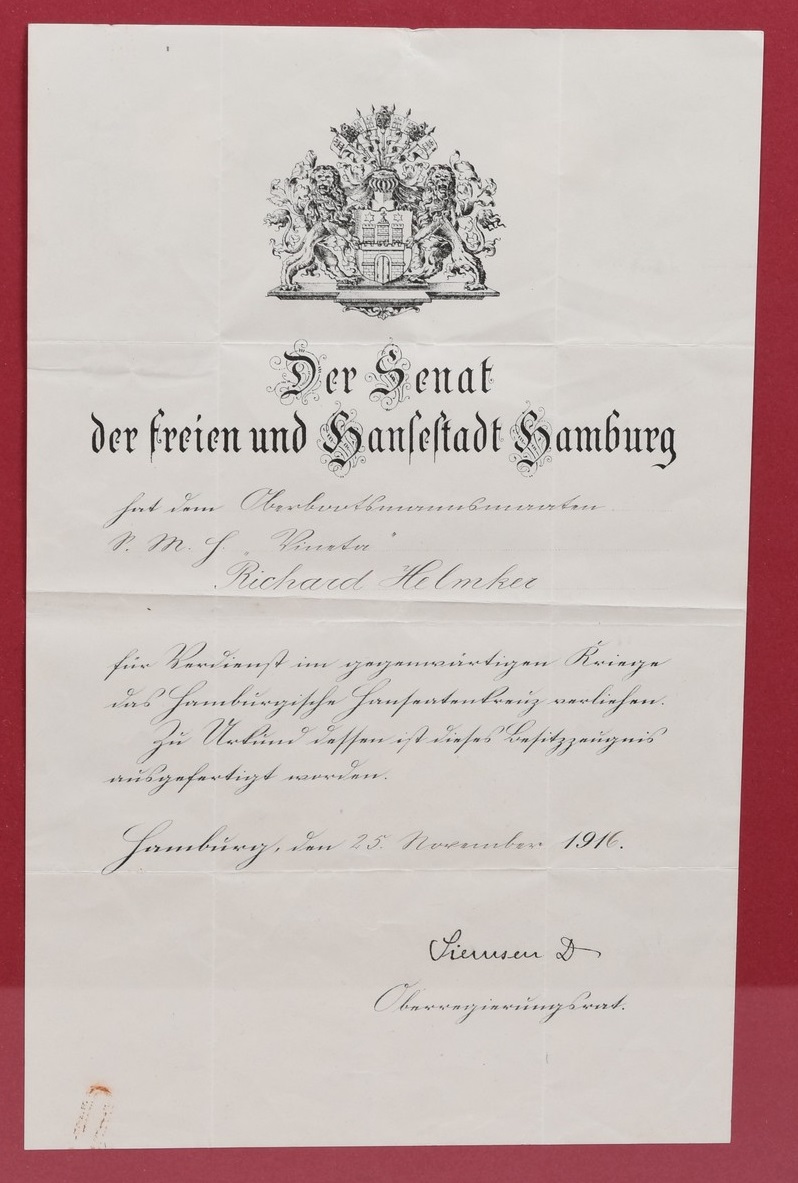 Der Senat
der freien und Hansestadt Hamburg
hat dem Oberbootsmannsmaaten
S. M. H. „Vineta"
Richard Helmker
für Verdienst im gegenwärtigen Kriege
das Hamburgische Hanseatenkreuz verliehen.
Zu Urkund dessen ist dieses Besitzzeugnis
ausgefertigt worden.
Hamburg, den 25. November 1916.
Siemsen D
Oberregierungsrat.